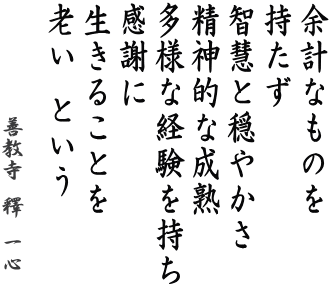 余計なものを
持たず
智慧と穏やかさ
精神的な成熟
多様な経験を持ち
感謝に
生きることを
老い という
善教寺 釋 一心